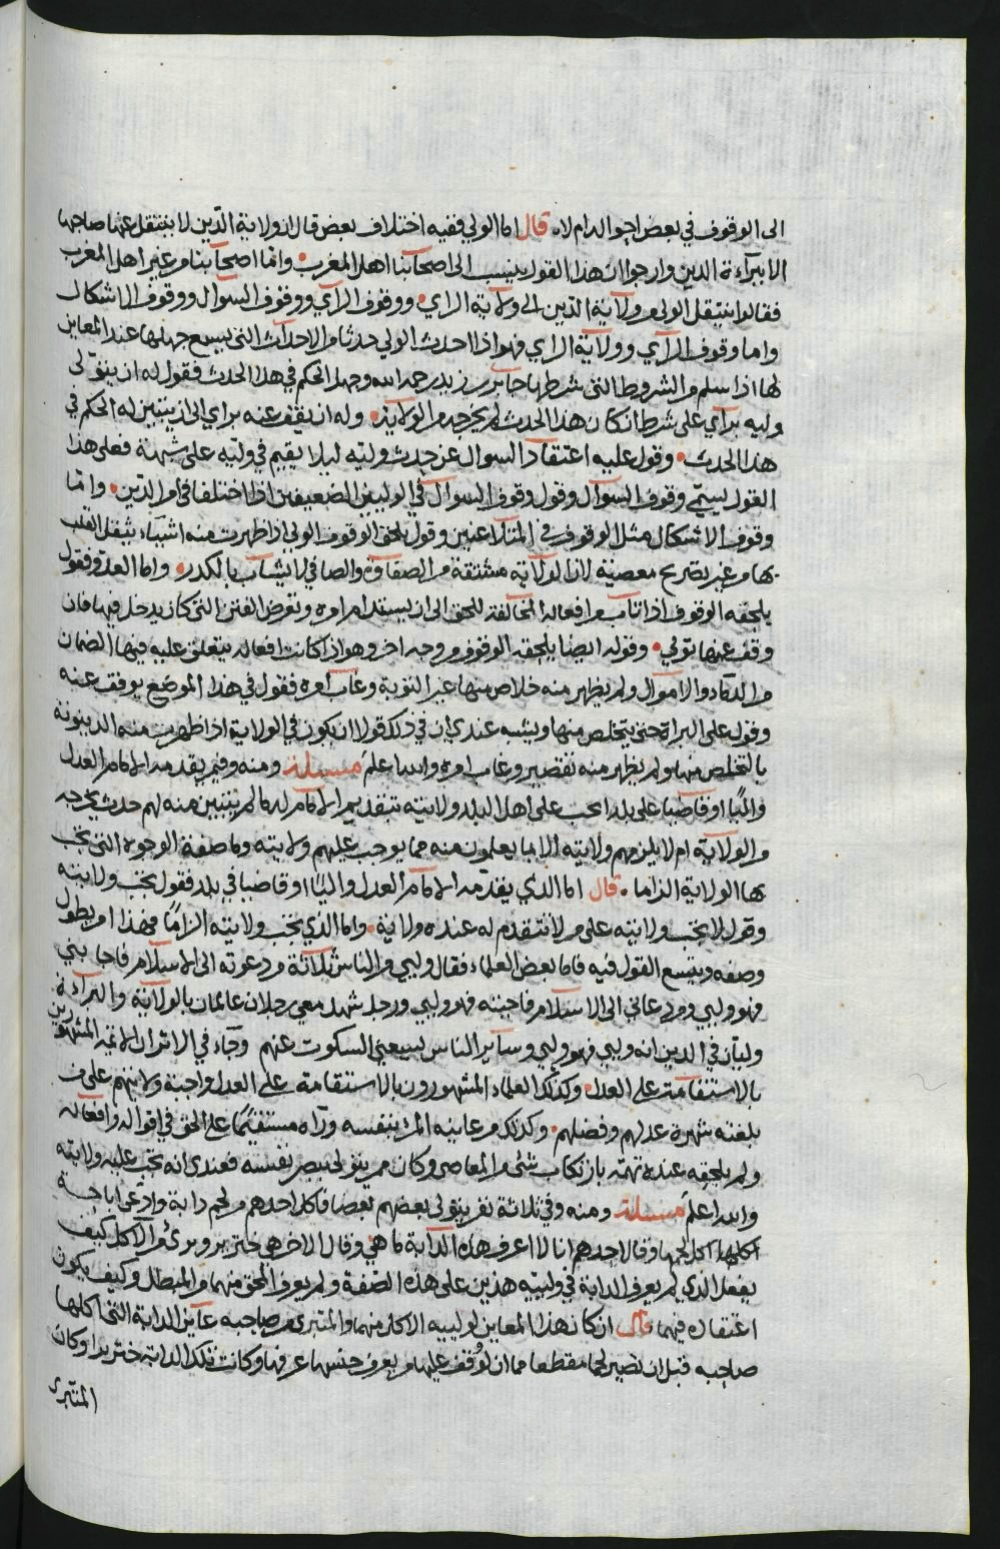 الى الوقوف في بعض احواله ام لا، قال اما الولي ففيه اختلاف بعض قال ان ولاية الدين لا ينتقل عنها صاحبها
الا ببرآءة الدين وارجوا ان هذا القول ينسب الى اصحابنا اهل المغرب وانما اصحابنا من غير اهل المغرب
فقالوا ينتقل الولي من ولاية الدين الى ولاية الراي ووقوف الرآي ووقوف السوال ووقوف الاشكال
واما وقوف الرآي وولاية الراي فهو اذا احدث الولي حدثا من الاحداث التي يسع جهلها عند المعاين
لها اذا سلم من الشروط التي شرطها جابر بن زيد رحمه الله وجهل الحكم في هذا الحدث فقول له ان يتولى
وليه برآي على شرط ان كان هذا الحدث لم يخرجه من الولاية وله ان يقف عنه براي الى ان يتبين له الحكم في
هذا الحدث وقول عليه اعتقاد السوال عن حدث وليه ليلا يقيم في وليه على شبهة فعلى هذا
القول يسمى وقوف السوآل وقول وقوف السوآل في الوليين الضعيفين اذا اختلفا في امر الدين وانما
وقوف الاشكال مثل الوقوف في المتلاعنين وقول يلحق الوقوف الولي اذا ظهرت منه اشياء يثقل القلب
بها من غير تصريح معصية لان الولاية مشتقة من الصفاوة والصافي لا يشاب بالكدر واما العدو فقول
يلحقه الوقوف اذا تاب من افعاله المخالفة للحق الى ان يستدام امره وتعرض الفتن التي كان يدخل فيها فان
وقف عنها تولي وقوله ايضا يلحقه الوقوف من وجه اخر وهو اذا كانت افعاله يتعلق عليه فيها الضمان
من الدماء والاموال ولم يظهر منه خلاص منها غير التوبة وغاب امره فقول في هذا الموضع يوقف عنه
وقول على البراة حتى يتخلص منها ويشبه عندي ان في ذلك قولا ان يكون في الولاية اذا ظهرت منه الدينونة
بالتخلص منها ولم يظهر منه تقصير وغاب امره والله اعلم مسئلة ومنه وفيمن يقدمه الامام العدل
واليًا او قاضيا على بلد ايجب على اهل البلد ولايته بتقديم الامام له ما لم يتبين منه لهم حدث يخرجه
من الولاية ام لا يلزمهم ولايته الا بما يعلمون منه مما يوجب عليهم ولايته وما صفة الوجوه التي تجب
بها الولاية الزاما قال اما الذي يقدمه الامام العدل واليًا او قاضيا في بلد فقول تجب ولايته
وقول لا تجب ولايته على من لا تتقدم له عنده ولاية واما الذي تجب ولايته الزامًا فهذا امر يطول
وصفه ويتسع القول فيه فاما بعض العلماء فقال وليي من الناس ثلاثة من دعوته الى الاسلام فاجابني
فهو وليي ومن دعاني الى الاسلام فاجبته فهو وليي ورجل شهد معي رجلان عالمان بالولاية والبرآءة
وليان في الدين انه وليي فهو وليي وساير الناس يسعني السكوت عنهم وجآء في الاثر ان الائمة المشهورين
بالاستقامة على العدل وكذلك العلماء المشهورون بالاستقامة على العدل واجبة ولايتهم على من
بلغته شهرة عدلهم وفضلهم وكذلك من عاينه المرء بنفسه ورآه مستقيمًا على الحق في اقواله وافعاله
ولم يلحقه عنده تهمة بارتكاب شئ من المعاصي وكان ممن يتولى ببصر نفسه فعندي انه تجب عليه ولايته
والله اعلم مسئلة ومنه وفي ثلاثة نفر يتولى بعضهم بعضا فاكل احدهم من لحم دابة وادعى اباحة
اكلها اكل لحمها وقال احدهم انا لا اعرف هذه الدابة ما هي وقال الاخر هي خنزير وبرئ من الآكل كيف
يفعل الذي لم يعرف الدابة في ولييه هذين على هذه الصفة ولم يعرف المحق منهما من المبطل وكيف يكون
اعتقاده فيهما قال ان كان هذا المعاين لولييه الاكل منهما والمتبري من صاحبه عاين الدابة التي اكلها
صاحبه قبل ان تصير لحما مقطعا مما ان لو وقف عليها من يعرف جنسها عرفها وكانت تلك الدابة خنزيرا وكان
المتبرى